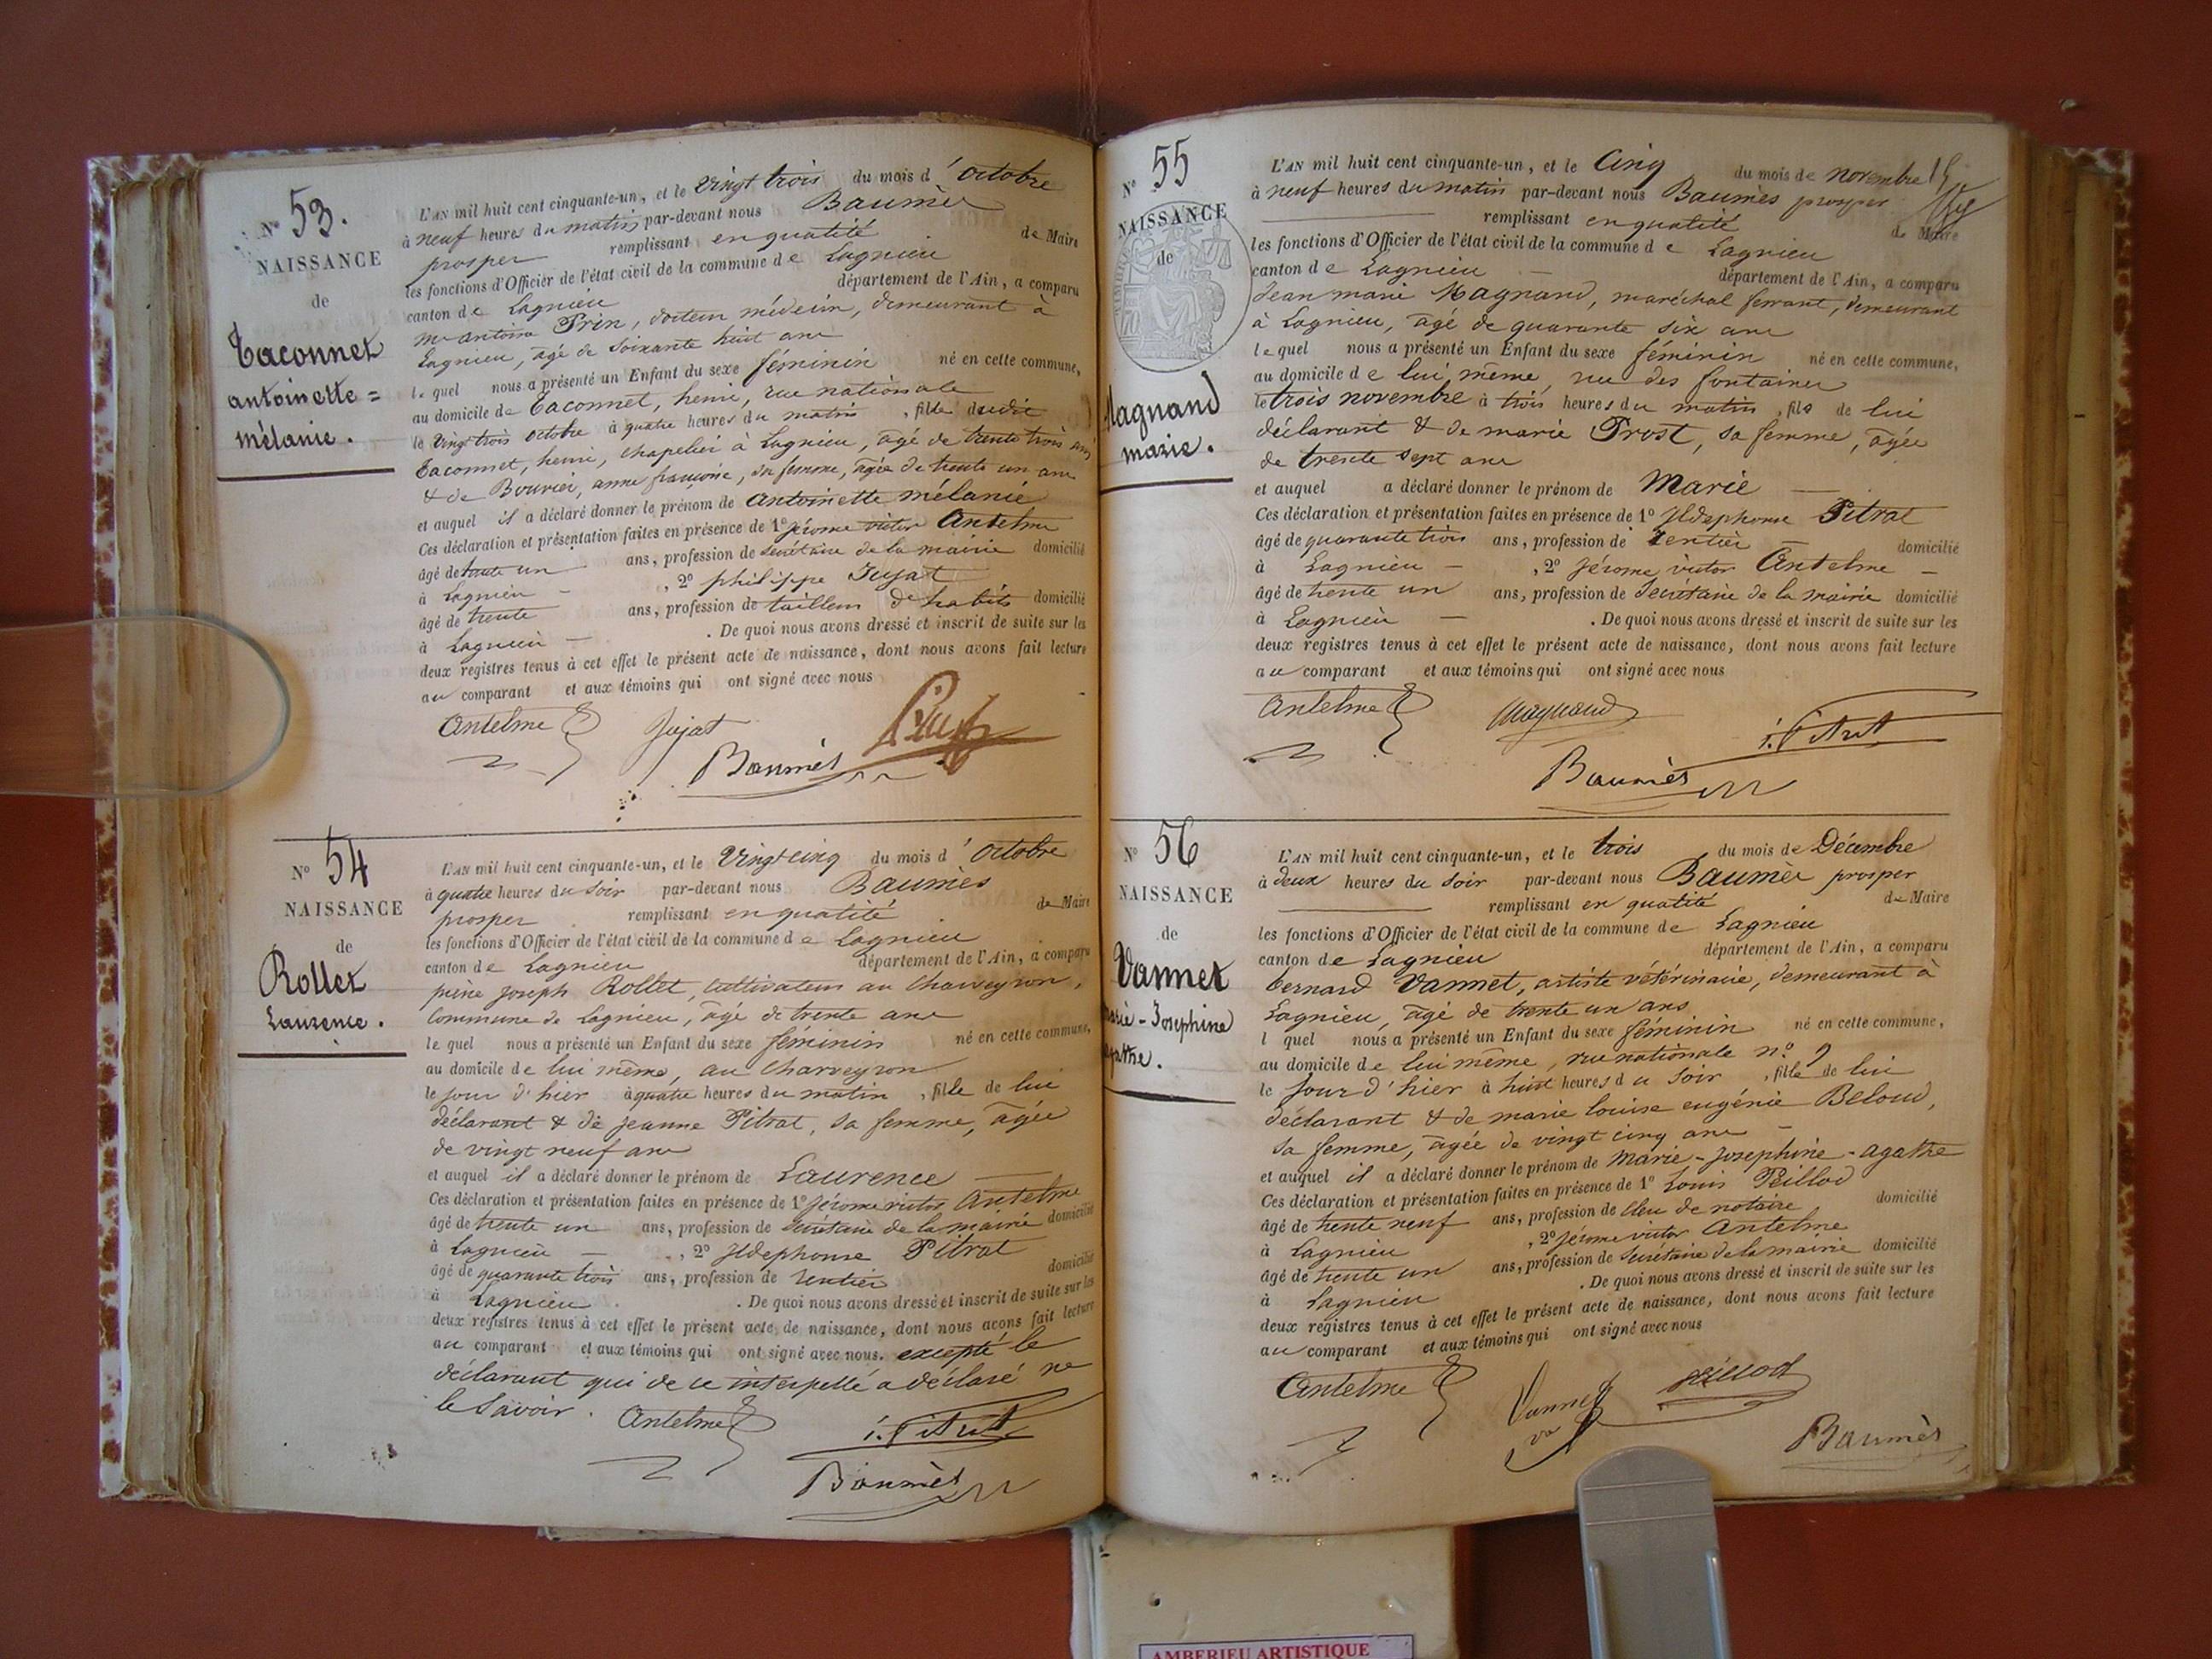 N° 53.
NAISSANCE
de
Taconnet
antoinette =
mélanie.
L'AN mil huit cent cinquante-un, et le vingt trois du mois d'octobre
à neuf heures du matin par-devant nous Baumès
prosper remplissant en qualité de Maire
les fonctions d'Officier de l'état civil de la commune de Lagnieu
canton de Lagnieu département de l'Ain, a comparu
mr antoine Prin, docteur médecin, demeurant à
Lagnieu, âgé de soixante huit ans
lequel nous a présenté un Enfant du sexe féminin né en cette commune,
au domicile de Taconnet, henri, rue nationale
le vingt trois octobre à quatre heures du matin, fille dudit
Taconnet, henri, chapelier à Lagnieu, âgé de trente trois ans
& de Bouvier, anne françoise, sa femme, âgée de trente un ans
et auquel il a déclaré donner le prénom de antoinette mélanie
Ces déclaration et présentation faites en présence de 1° jérome victor Antelme
âgé de trente un ans, profession de secrétaire de la mairie domicilié
à Lagnieu - , 2° philippe Jujat
âgé de trente ans, profession de tailleur de habits domicilié
à Lagnieu - . De quoi nous avons dressé et inscrit de suite sur les
deux registres tenus à cet effet le présent acte de naissance, dont nous avons fait lecture
au comparant et aux témoins qui ont signé avec nous
Antelme Jujat
Baumès
N° 54
NAISSANCE
de
Rollet
Laurence.
L'AN mil huit cent cinquante-un, et le vingt cinq du mois d'octobre
à quatre heures du soir par-devant nous Baumès
prosper remplissant en qualité de Maire
les fonctions d'Officier de l'état civil de la commune de Lagnieu
canton de Lagnieu département de l'Ain, a comparu
joseph Rollet, cultivateur au Charveyron,
commune de Lagnieu, âgé de trente ans
lequel nous a présenté un Enfant du sexe féminin né en cette commune,
au domicile de lui même, au Charveyron
le jour d'hier à quatre heures du matin, fille de lui
déclarant & de jeanne Pitrat, sa femme, âgée
de vingt neuf ans
et auquel il a déclaré donner le prénom de Laurence
Ces déclaration et présentation faites en présence de 1° jérome victor Antelme
âgé de trente un ans, profession de secrétaire de la mairie domicilié
à Lagnieu - , 2° Ildephonse Pitrat
âgé de quarante trois ans, profession de rentier domicilié
à Lagnieu . De quoi nous avons dressé et inscrit de suite sur les
deux registres tenus à cet effet le présent acte de naissance, dont nous avons fait lecture
au comparant et aux témoins qui ont signé avec nous. excepté le
déclarant qui de ce interpellé a déclaré ne
le savoir. Antelme
i. Pitrat
Baumès
N° 55
NAISSANCE
de
Magnand
marie.
L'AN mil huit cent cinquante-un, et le Cinq du mois de novembre
à neuf heures du matin par-devant nous Baumès prosper
remplissant en qualité de Maire
les fonctions d'Officier de l'état civil de la commune de Lagnieu
canton de Lagnieu - département de l'Ain, a comparu
Jean marie Magnand, maréchal ferrant, demeurant
à Lagnieu, âgé de quarante six ans
lequel nous a présenté un Enfant du sexe féminin né en cette commune,
au domicile de lui même, rue des fontaines
le trois novembre à trois heures du matin, fils de lui
déclarant & de marie Prost, sa femme, âgée
de trente sept ans
et auquel a déclaré donner le prénom de Marie
Ces déclaration et présentation faites en présence de 1° Ildephonse Pitrat
âgé de quarante trois ans, profession de Rentier domicilié
à Lagnieu - , 2° jérome victor Antelme -
âgé de trente un ans, profession de Secrétaire de la mairie domicilié
à Lagnieu - . De quoi nous avons dressé et inscrit de suite sur les
deux registres tenus à cet effet le présent acte de naissance, dont nous avons fait lecture
au comparant et aux témoins qui ont signé avec nous
Antelme Magnand
i. Pitrat
Baumès
N° 56
NAISSANCE
de
Vannet
marie-Josephine
agathe.
L'AN mil huit cent cinquante-un, et le trois du mois de Décembre
à deux heures du soir par-devant nous Baumès prosper
remplissant en qualité de Maire
les fonctions d'Officier de l'état civil de la commune de Lagnieu
canton de Lagnieu département de l'Ain, a comparu
bernard Vannet, artiste vétérinaire, demeurant à
Lagnieu, âgé de trente un ans
l quel nous a présenté un Enfant du sexe féminin né en cette commune,
au domicile de lui même, rue nationale n°. 9
le jour d'hier à huit heures du soir, fille de lui
déclarant & de marie louise eugénie Beloud,
sa femme, âgée de vingt cinq ans -
et auquel il a déclaré donner le prénom de marie-josephine-agathe
Ces déclaration et présentation faites en présence de 1° Louis Peillod
âgé de trente neuf ans, profession de clerc de notaire domicilié
à Lagnieu , 2° jérome victor Antelme
âgé de trente un ans, profession de Secrétaire de la mairie domicilié
à Lagnieu . De quoi nous avons dressé et inscrit de suite sur les
deux registres tenus à cet effet le présent acte de naissance, dont nous avons fait lecture
au comparant et aux témoins qui ont signé avec nous
Antelme Vannet peillod
Baumès
AMBERIEU ARTISTIQUE